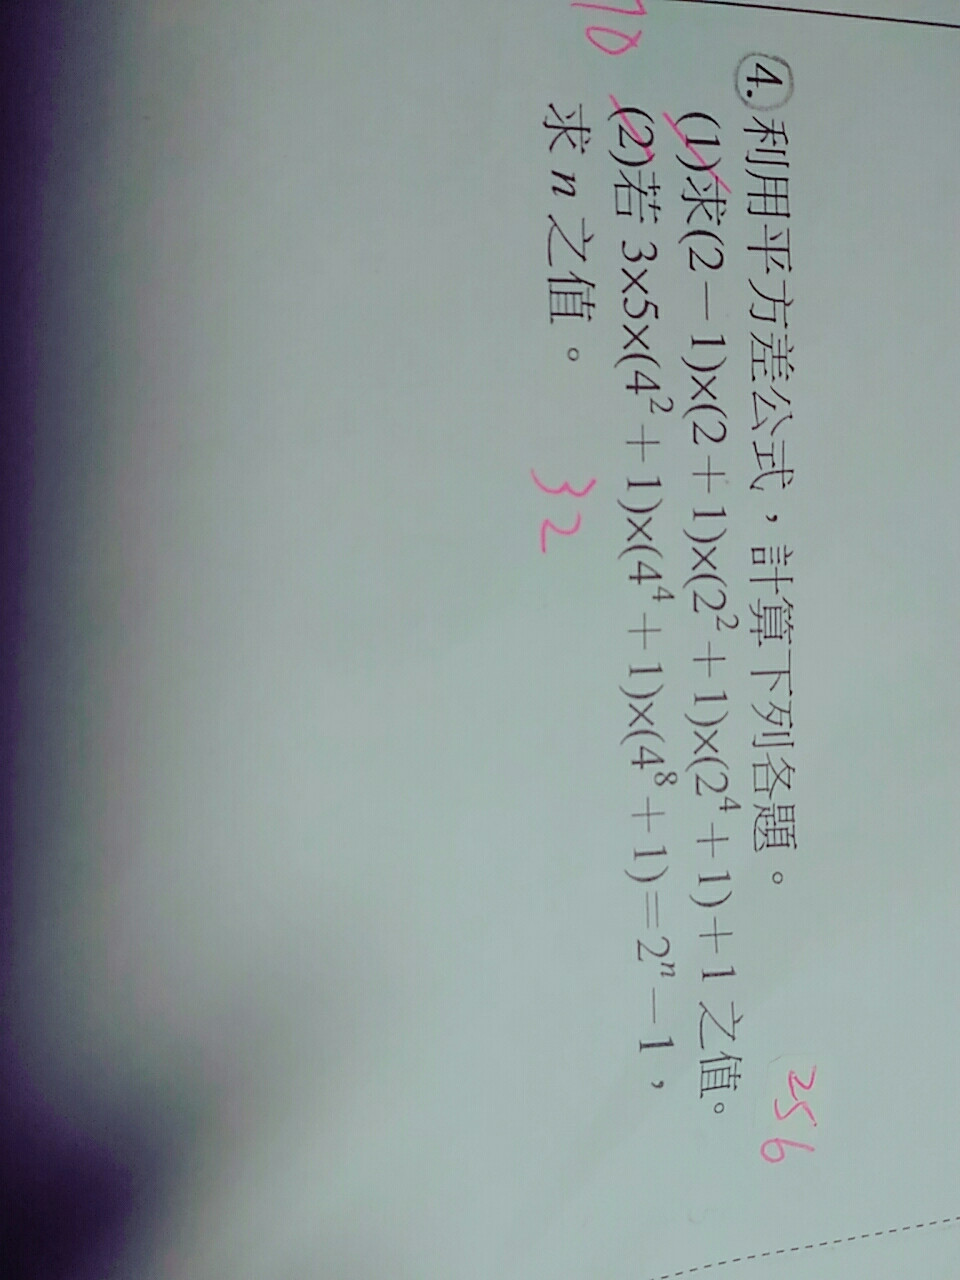 4.利用平方差公式，計算下列各題。
(1)求(2－1)×(2＋1)×(2²＋1)×(2⁴＋1)＋1 之值。
256
(2)若 3×5×(4²＋1)×(4⁴＋1)×(4⁸＋1)＝2ⁿ－1，
求 n 之值。
32